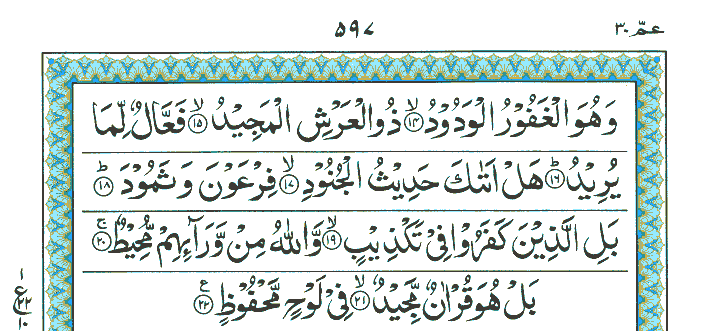 عمّ ٣٠
٥٩٧
وَهُوَ الْغَفُوْرُ الْوَدُوْدُ ۙ﴿۱۴﴾ ذُو الْعَرْشِ الْمَجِيْدُ ۙ﴿۱۵﴾ فَعَّالٌ لِّمَا
يُرِيْدُ ؕ﴿۱۶﴾ هَلْ اَتٰىكَ حَدِيْثُ الْجُنُوْدِ ۙ﴿۱۷﴾ فِرْعَوْنَ وَ ثَمُوْدَ ؕ﴿۱۸﴾
بَلِ الَّذِيْنَ كَفَرُوْا فِيْ تَكْذِيْبٍ ۙ﴿۱۹﴾ وَّاللّٰهُ مِنْ وَّرَآئِهِمْ مُّحِيْطٌ ۚ﴿۲۰﴾
بَلْ هُوَ قُرْاٰنٌ مَّجِيْدٌ ۙ﴿۲۱﴾ فِيْ لَوْحٍ مَّحْفُوْظٍ ﴿۲۲﴾ ع
١
ع ٢٢
١٠